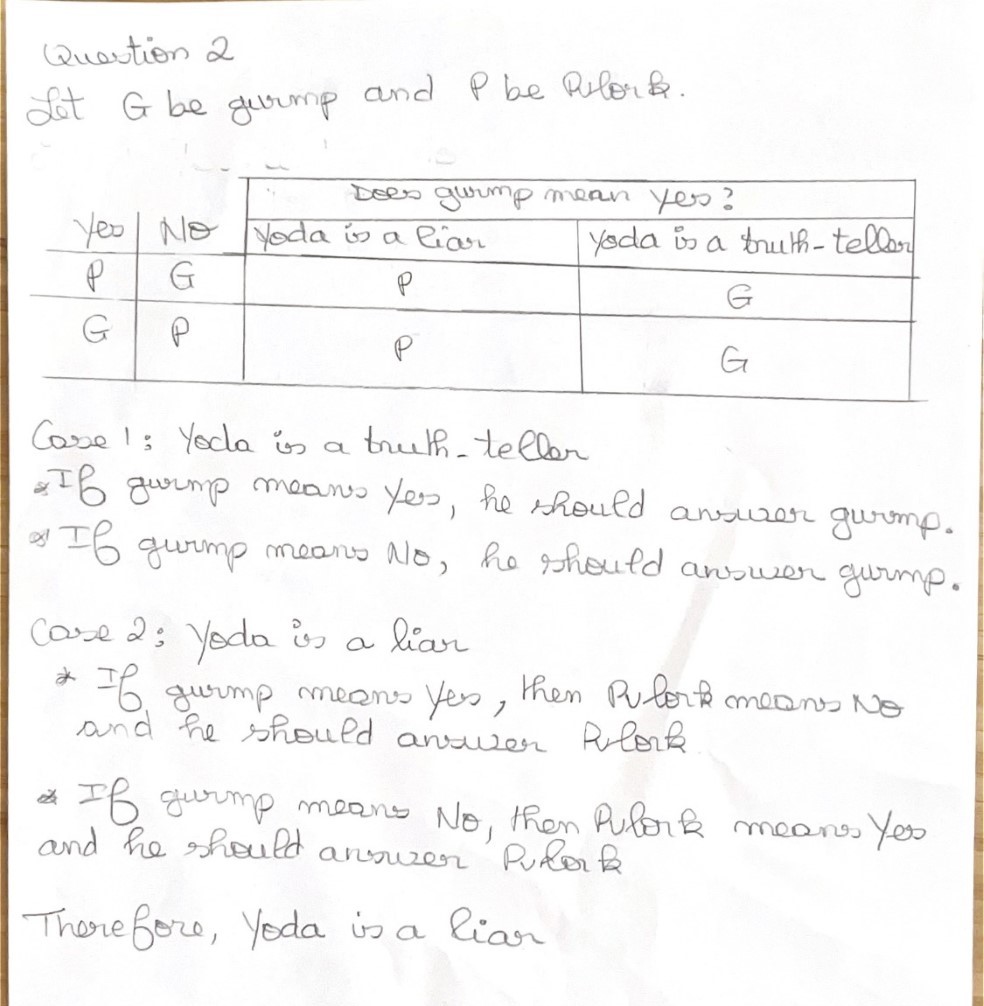 Question 2
Let G be gurmp and P be Pulork.
Does gurmp mean yes?
Yes No Yoda is a liar Yoda is a truth-teller
P G P G
G P P G
Case 1: Yoda is a truth-teller
* If gurmp means Yes, he should answer gurmp.
* If gurmp means No, he should answer gurmp.
Case 2: Yoda is a liar
* If gurmp means Yes, then Pulork means No
and he should answer Pulork
* If gurmp means No, then Pulork means Yes
and he should answer Pulork
Therefore, Yoda is a liar